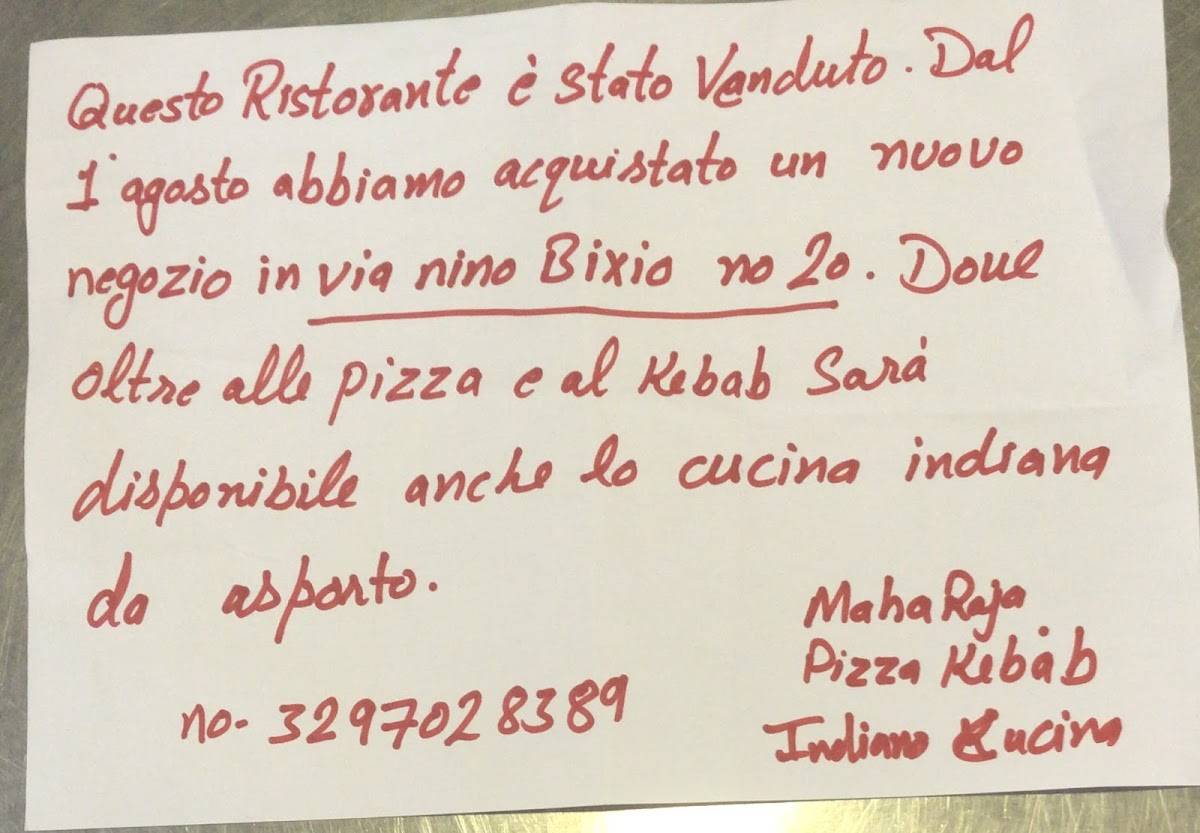 Questo Ristorante è stato Vanduto. Dal
1° agosto abbiamo acquistato un nuovo
negozio in via nino Bixio no 20. Dove
oltre alle pizza e al Kebab Sarà
disponibile anche la cucina indiana
da asporto.
Maha Raja
Pizza Kebab
no- 3297028389
Indiano Cucina